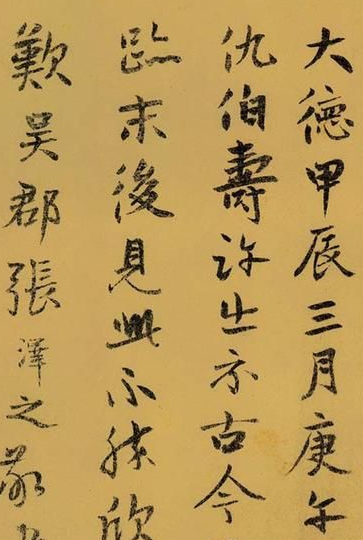 大德甲辰三月庚午
仇伯壽許出示古今
臨末後見此不勝欣
歎吳郡張澤之敬